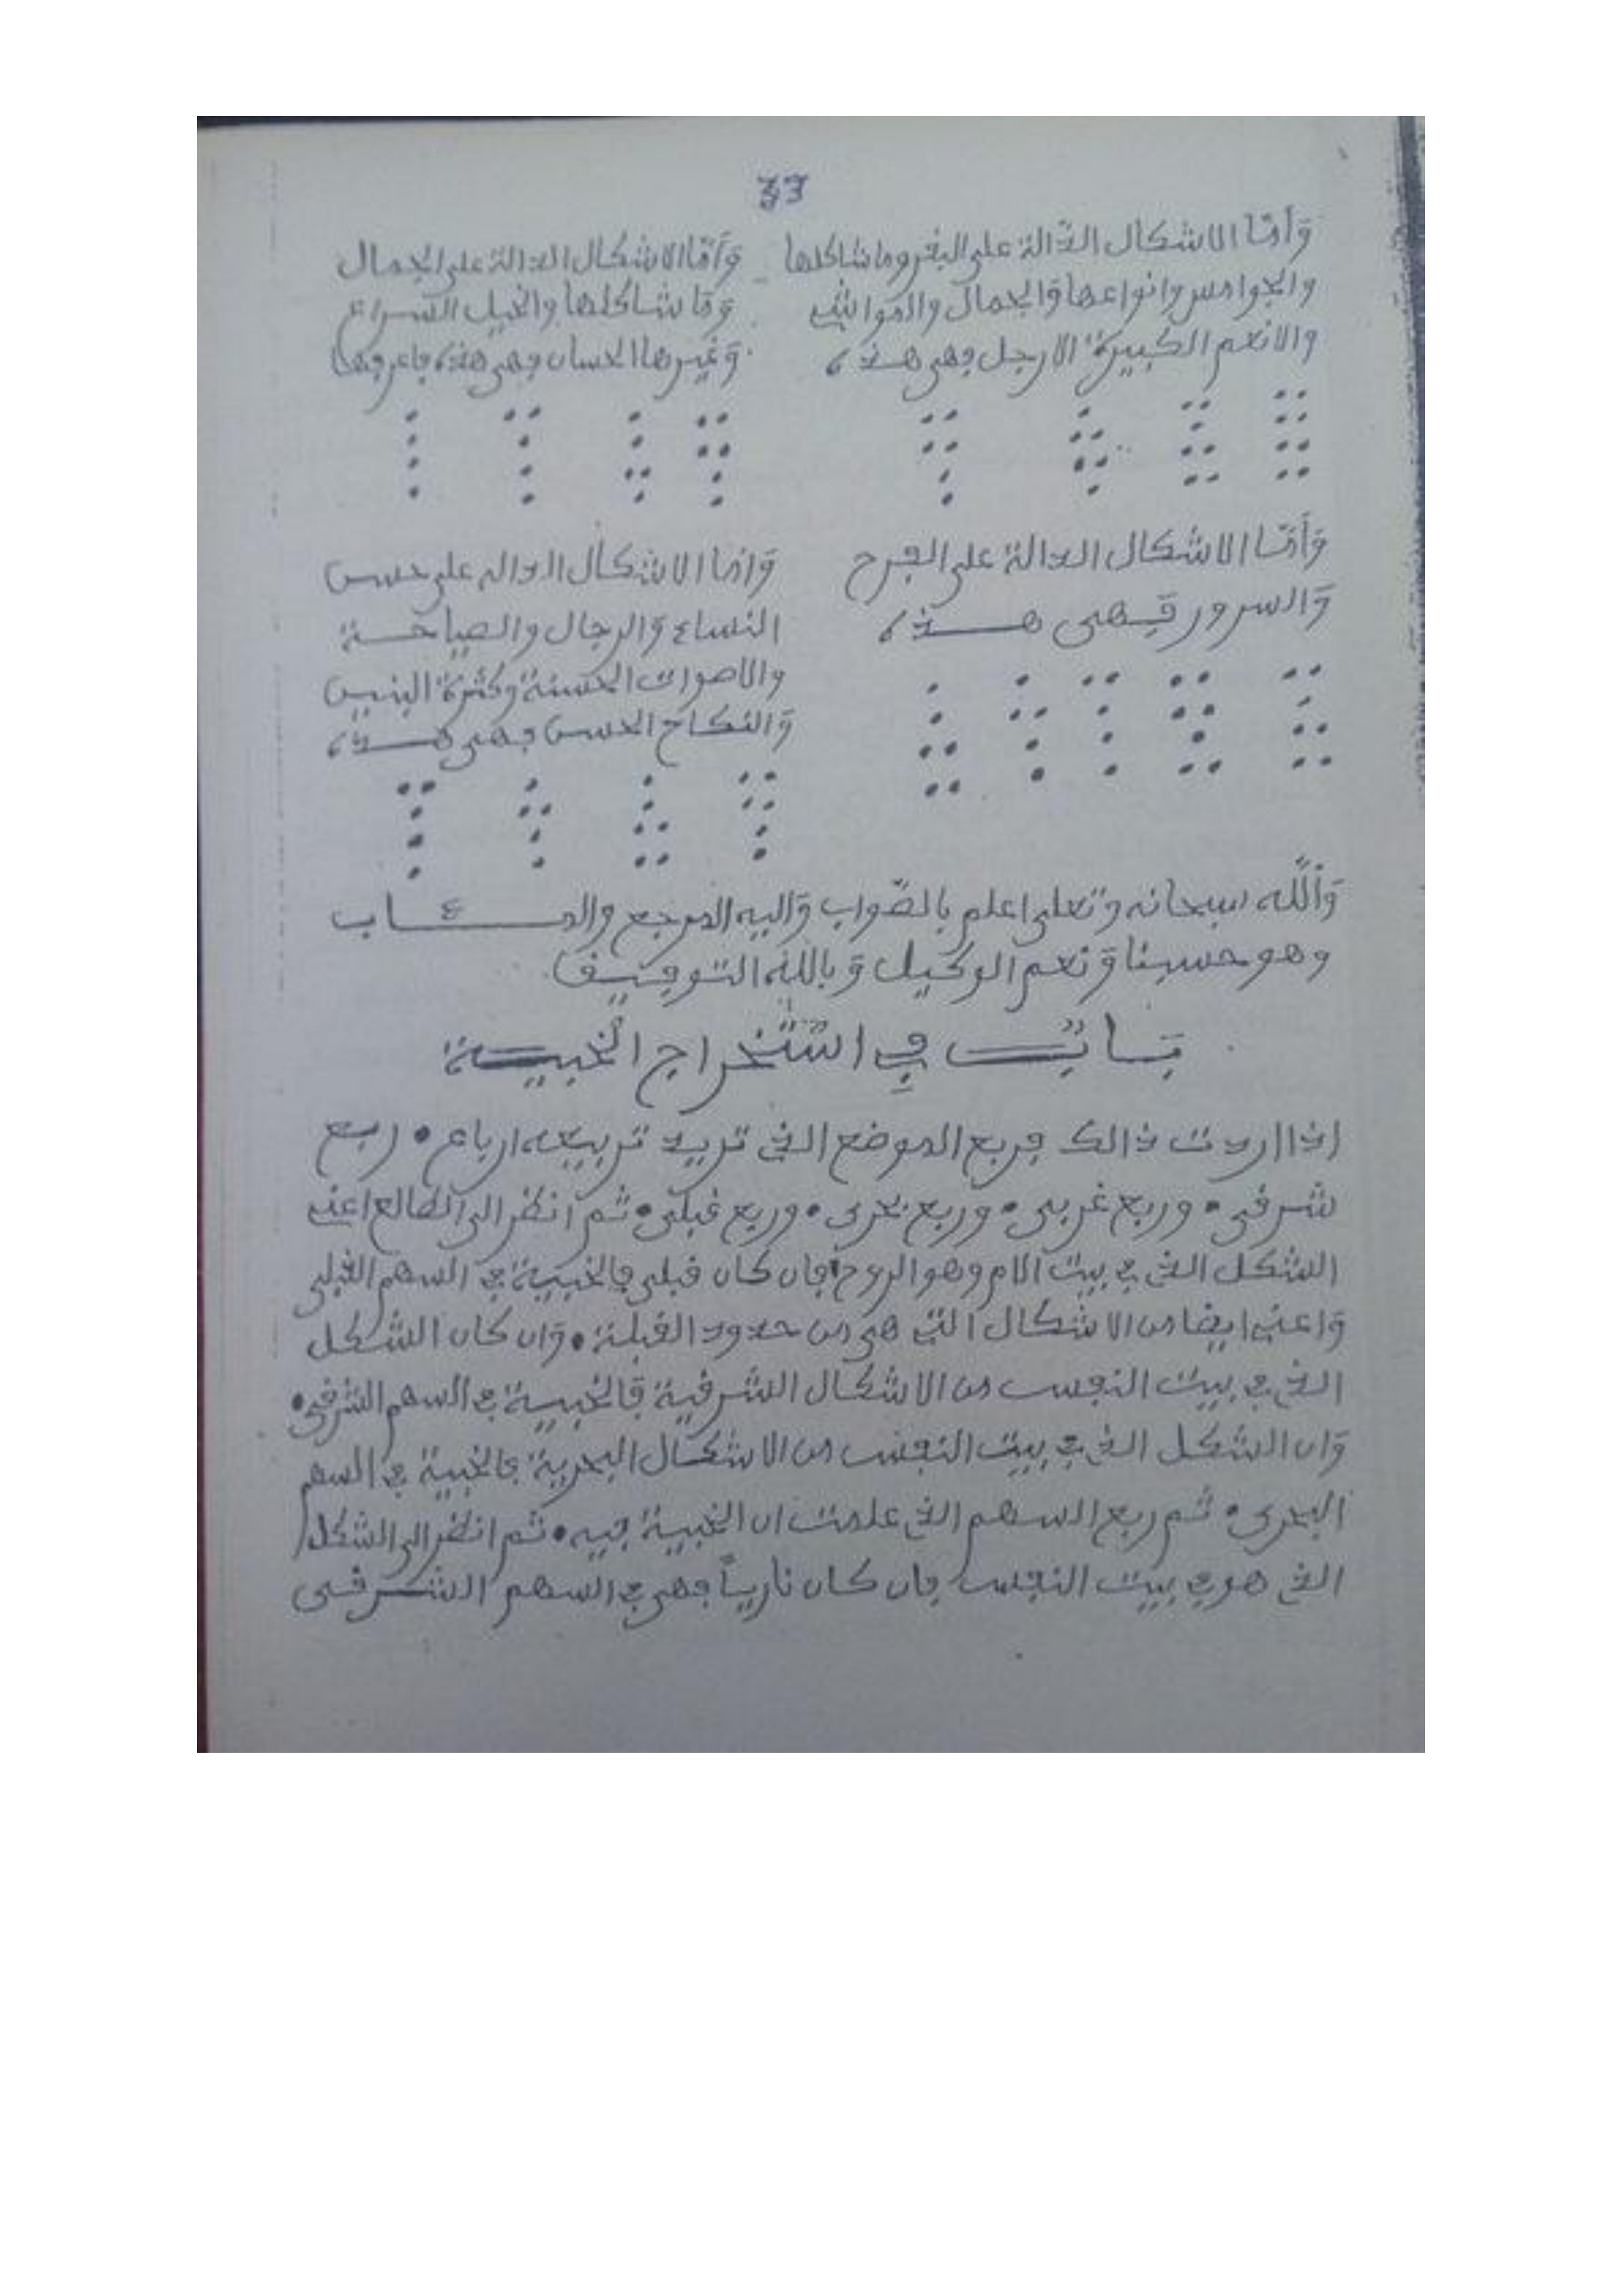 33
وَأمّا الاشكال الدّالة على البقر وما شاكلها
والجوامس وانواعها وَالجمال والمواشي
والانعم الكبيرة الارجل فهي هذه
وَأمّا الاشكال الدالة على الجمال
وَما شاكلها والخيل السراع
وَغيرها الحسان فهي هذه فاعرفها
وَأمّا الاشكال الدالة على الفرح
وَالسرور فهى هـــذه
وَاما الاشكال الداله على حسن
النساء وَالرجال والصباحــة
والاصوات الحسنة وكثرة البنين
وَالنكاح الحسن فهى هــذه
وَاللّه سبحانه وتعلى اعلم بالصّواب وَاليه المرجع والمـــئـــاب
وهو حسبنا وَنعم الوكيل وَبالله التوفيــق
بَــابٌ في اسْتخراج الخبيــة
اذا اردت ذالك فربع الموضع الذي تريد تربيعه ارباع • ربع
شرقي • وربع غربي • وربع بحرى • وربع قبلى • ثم انظر الى الطالع اعني
الشكل الذي في بيت الام وهو الروح فان كان قبلى فالخبية في السهم القبلى
وَاعني ايضا من الاشكال التي هي من حدود القبلة • وَان كان الشكل
الذي في بيت النفس من الاشكال الشرقية فالخبية في السهم الشرقي •
وَان الشكل الذي في بيت النفس من الاشكال البحرية فالخبية في السهم
البحرى • ثم ربع السهم الذي علمت ان الخبية فيه • ثم انظر الى الشكل
الذي هو في بيت النفس فان كان نارياً فهي في السهم الشــرقــى